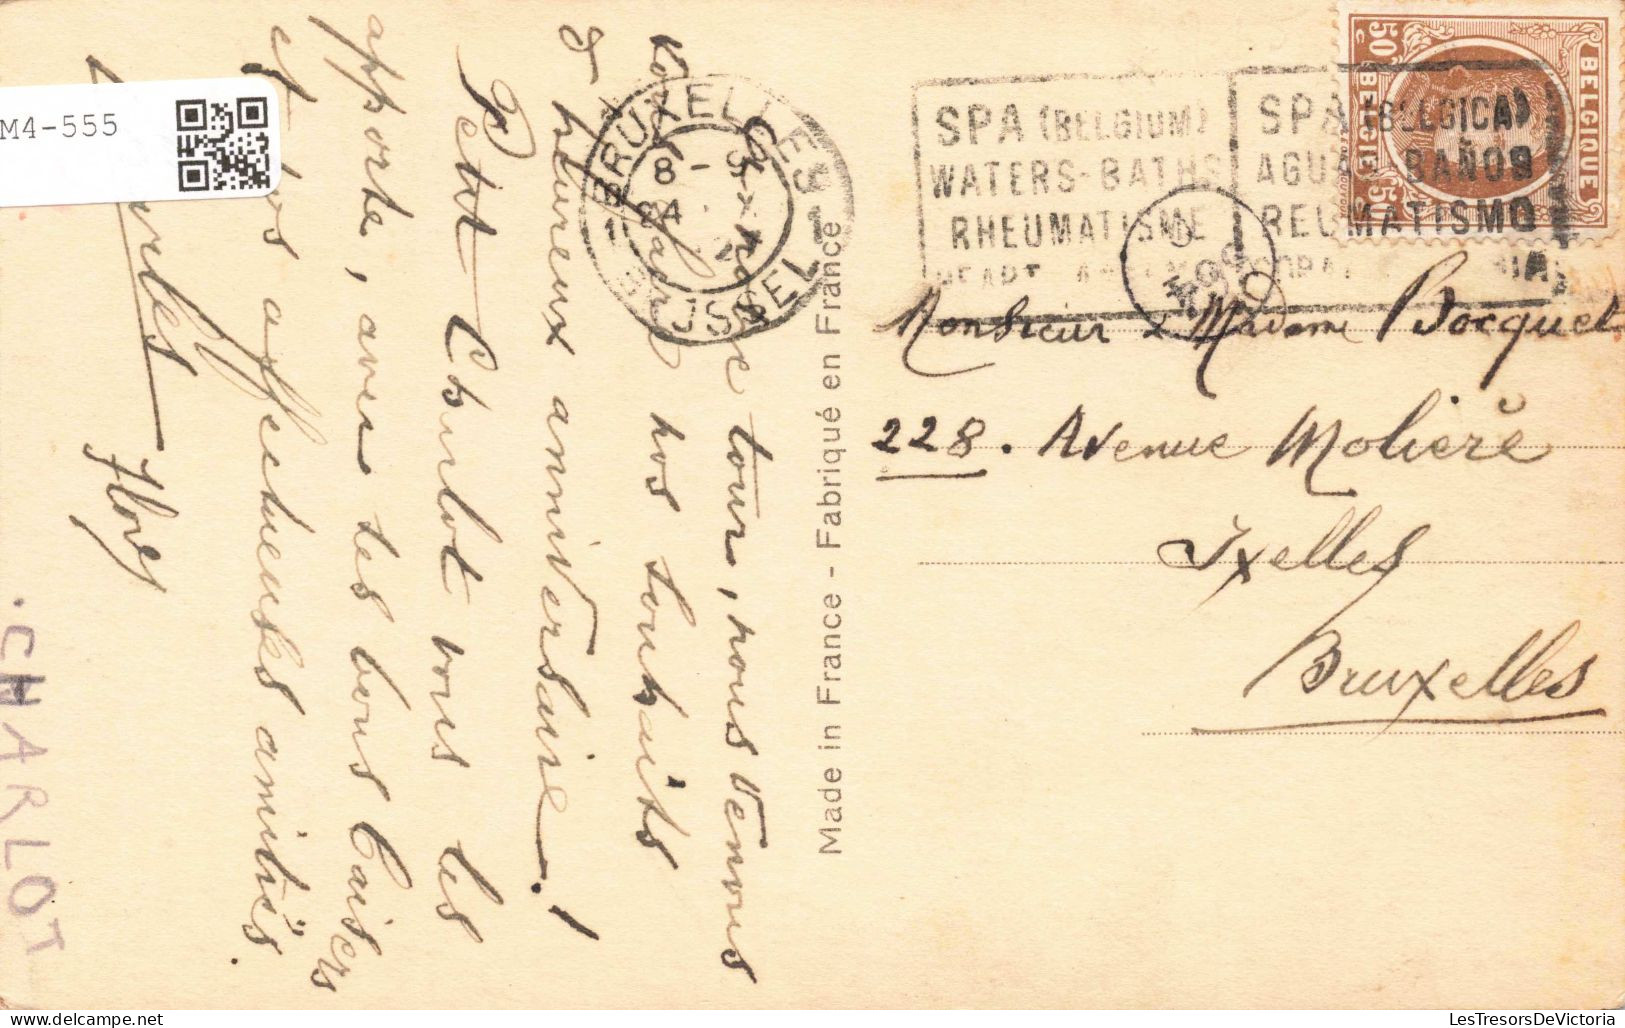 M4-555
A notre tour, nous venons
vous faire nos souhaits
d'heureux anniversaire!
Petit Charlot vous les
apporte, avec ses bons baisers
et nos affectueuses amitiés.
Flory
CHARLOT
BRUXELLES
8 -
BRUSSEL
Made in France - Fabriqué en France
SPA (BELGIUM)
WATERS-BATHS
RHEUMATISME
HEART
SPA (BELGICA)
AGUAS BAÑOS
REUMATISMO
BELGIQUE
BELGIE
50 c
50
Monsieur & Madame Bocquet
228. Avenue Molière
Ixelles
Bruxelles
LesTresorsDeVictoria